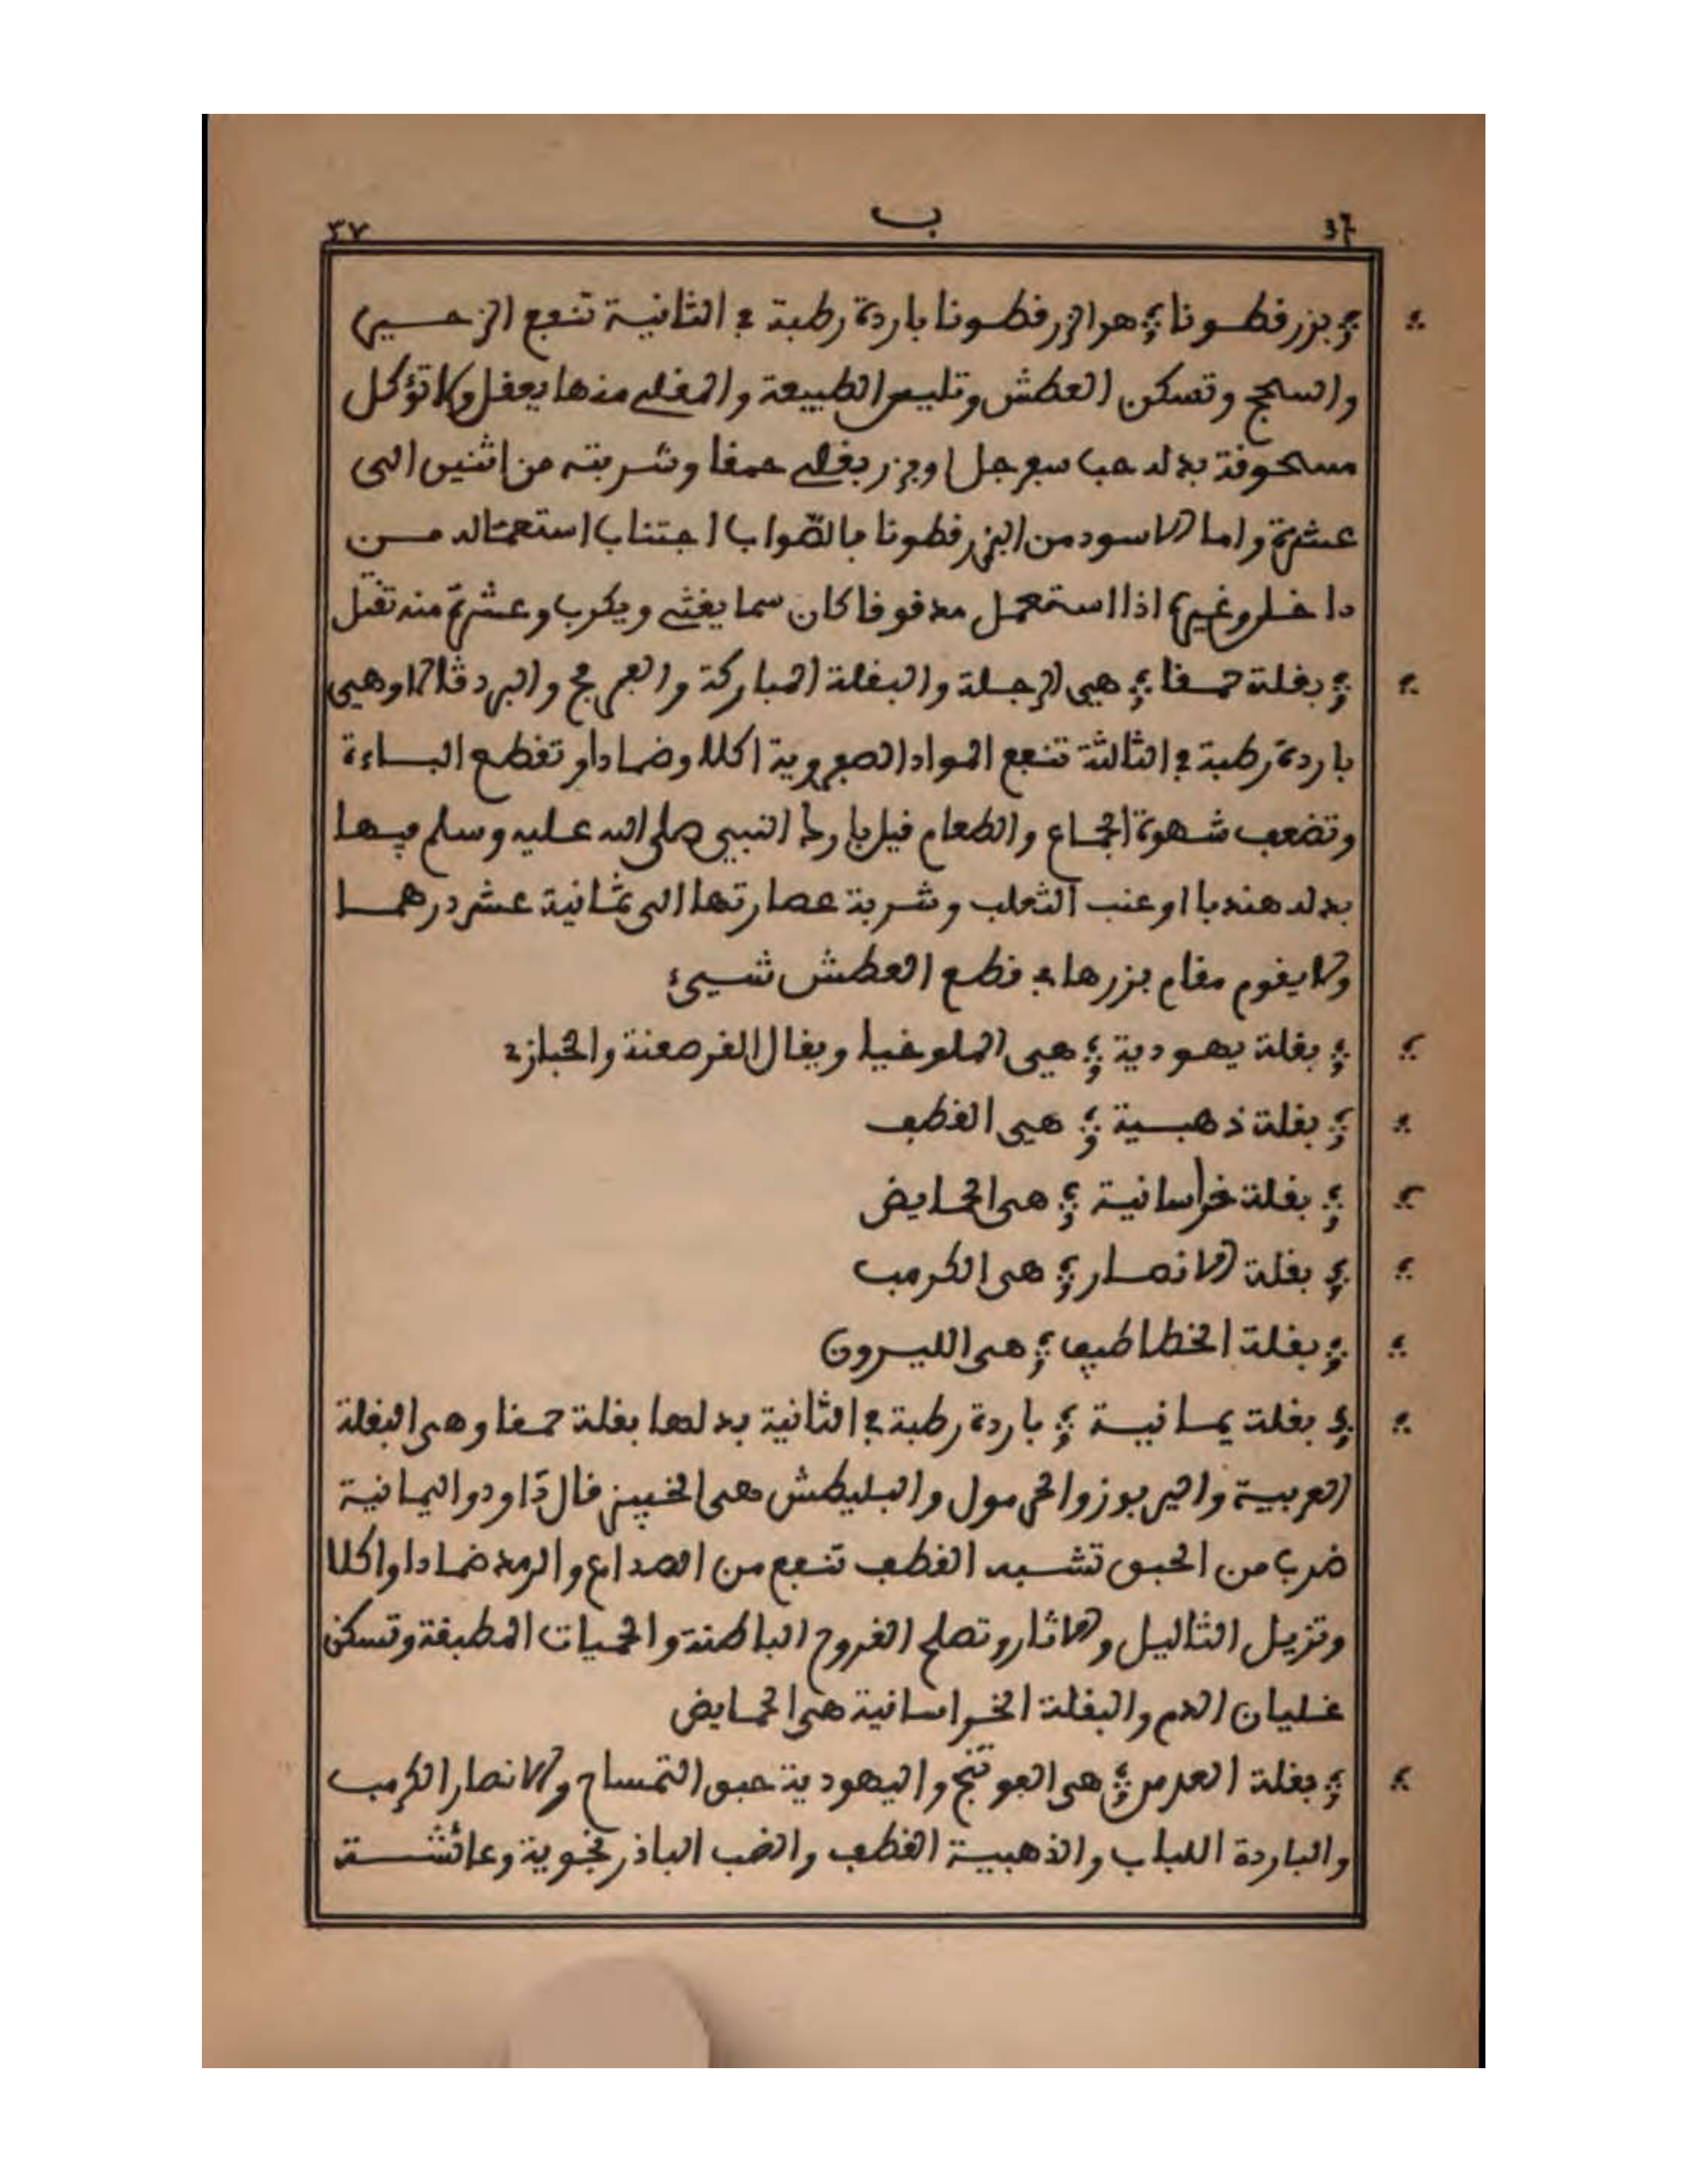 ٣٧ ب 37
بزر فطونا هو الزرفطونا باردة رطبة في الثانية تنبع الزحير
والسحج وتسكن العطش وتلين الطبيعة والمفلي منها يعفل ولا تؤكل
مسحوفة بدله حب سبرجل او بزر بفلة حمفا وشربته من اثنين الى
عشرة واما الاسود من البزر فطونا بالصّواب اجتناب استعماله من
داخل وغيره اذا استعمل مدفوفا كان سما يغثي ويكرب وعشرة منه تقتل
بفلة حمفا هي الرجلة والبفلة المباركة والبرفج والبردفالا وهي
باردة رطبة في الثالثة تنبع المواد الصبروية اكلا وضمادا وتفطع الباءة
وتضعب شهوة الجماع والطعام فيل بارك النبي صلى الله عليه وسلم بيها
بدله هندبا او عنب الثعلب وشربة عصارتها الى ثمانية عشر درهما
ولا يفوم مفام بزرها في فطع العطش شيئ
بفلة يهودية هي الملوخيا ويفال الفرصعنة والخبازي
بفلة ذهبية هي الفطب
بفلة خراسانية هي الحمايض
بفلة الانصار هي الكرمب
بفلة الخطاطيب هي الليرون
بفلة يمانية باردة رطبة في الثانية بدلها بفلة حمفا وهي البفلة
العربية واليربوز والجرمول والبليطش هي الخبيز فال داوود واليمانية
ضرب من الحبق تشبه الفطب تنبع من الصداع والرمد ضمادا واكلا
وتزيل الثاليل والاثار وتصلح الفروح الباطنة والحميات المطبفة وتسكن
غليان الدم والبفلة الخراسانية هي الحمايض
بفلة العدس هي البوتنج واليهودية حبق التمساح والانصار الكرمب
والباردة اللبلاب والذهبية الفطب والضب الباذرنجوية وعائشة